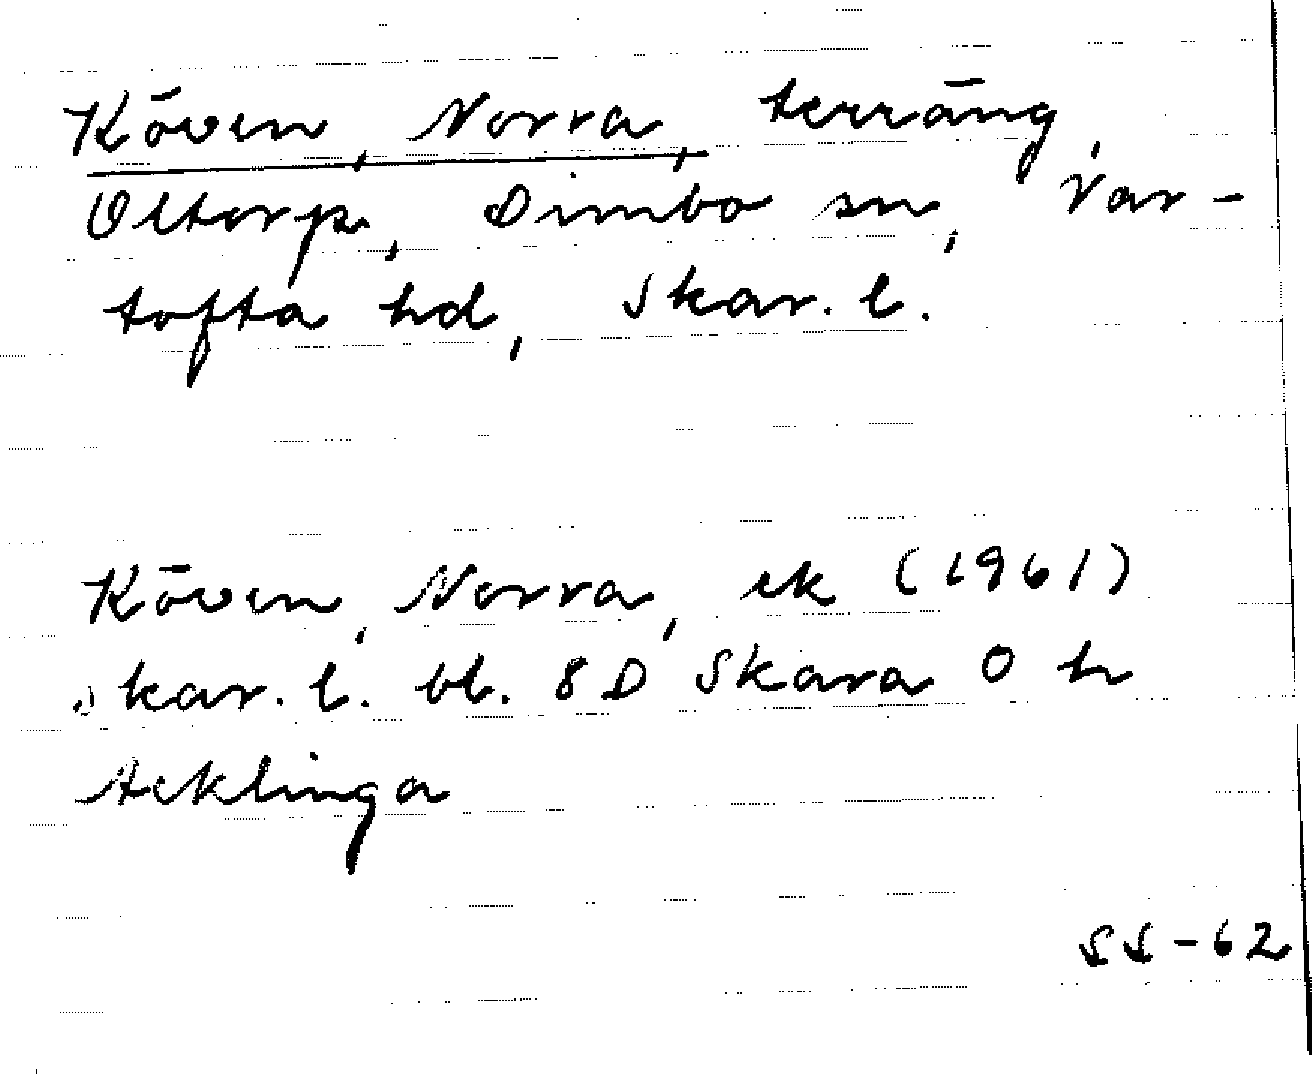 Köven, Norra, terräng,
Oltorp, Dimbo sn, Var-
tofta hd, Skar. l.
Köven, Norra, ek (1961)
Skar. l. bl. 8 D Skara 0 h
Acklinga
SS-62